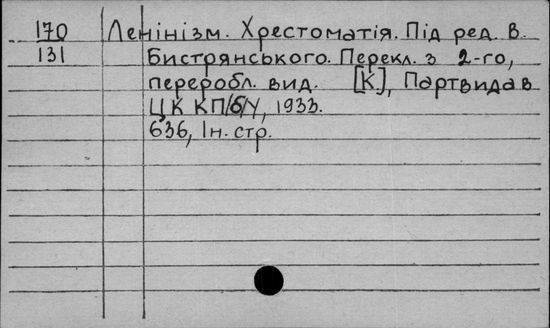 170 Ленінізм. Хрестоматія. Під ред. В.
131 Бистрянського. Перекл. з 2-го,
переробл. вид. [К], Партвидав
ЦК КП/б/У, 1933.
636, Ін. стр.